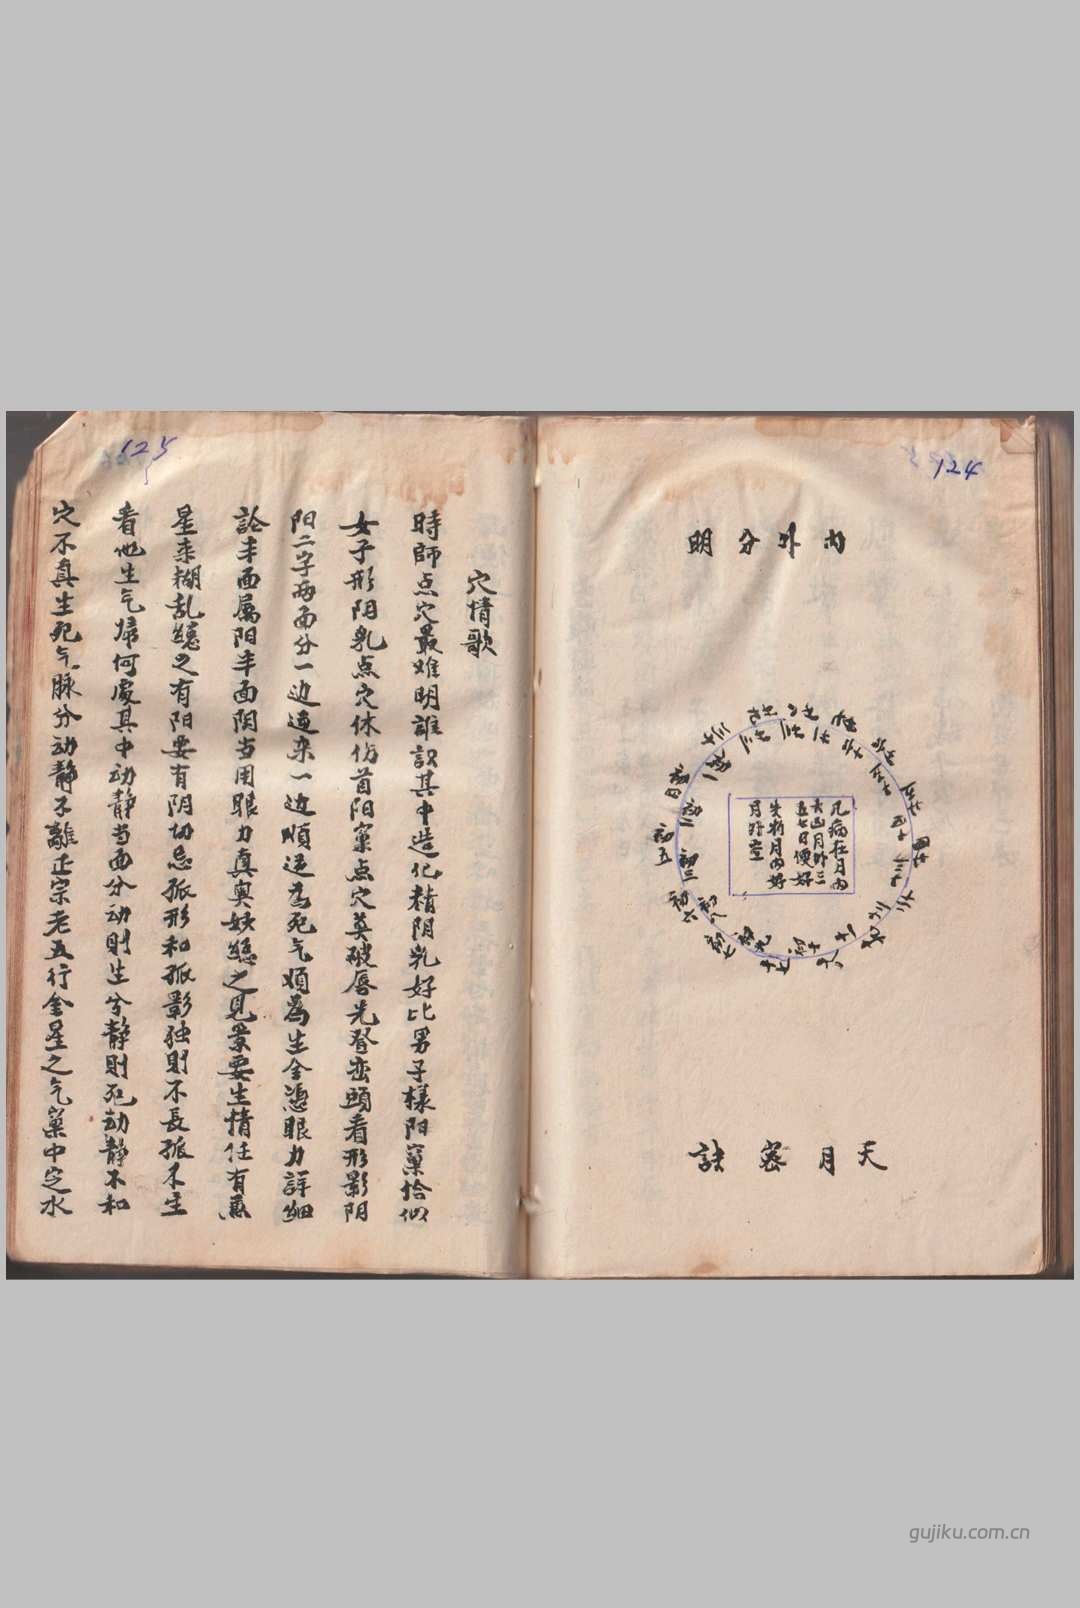 124
内外分明
凡病在月内
大凶月外三
五七日便好
失物月内好
月外空
初二
初三
初五
初六
初八
初七
初九
天月密訣
125
穴情歌
時師点穴最难明誰識其中造化精阴乳好比男子樣阳窠恰似
女子形阴乳点穴休伤首阳窠点穴莫破唇先登峦頭看形影阴
阳二字两面分一边逆来一边順逆為死气順為生全憑眼力詳細
論半面属阳半面阴当用眼力真奥妙總之見景要生情任有萬
星来糊乱總之有阳要有阴切忌孤形和孤影独則不長孤不生
看他生气归何處其中动静当面分动則生兮静則死动静不和
穴不真生死气脉分动静不離正宗老五行金星之气窠中定水
gujiku.com.cn